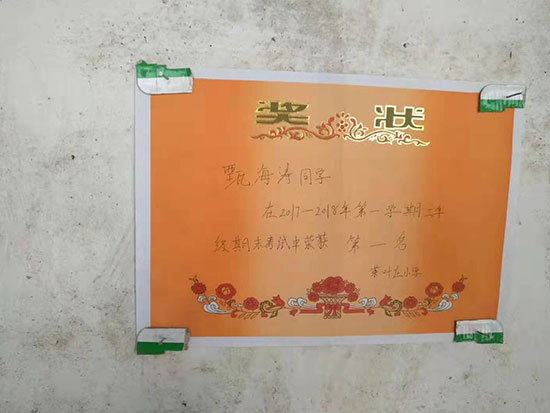 奖状
甄海涛同学
在2017—2018年第一学期二年
级期末考试中荣获 第一名
茶叶庄小学